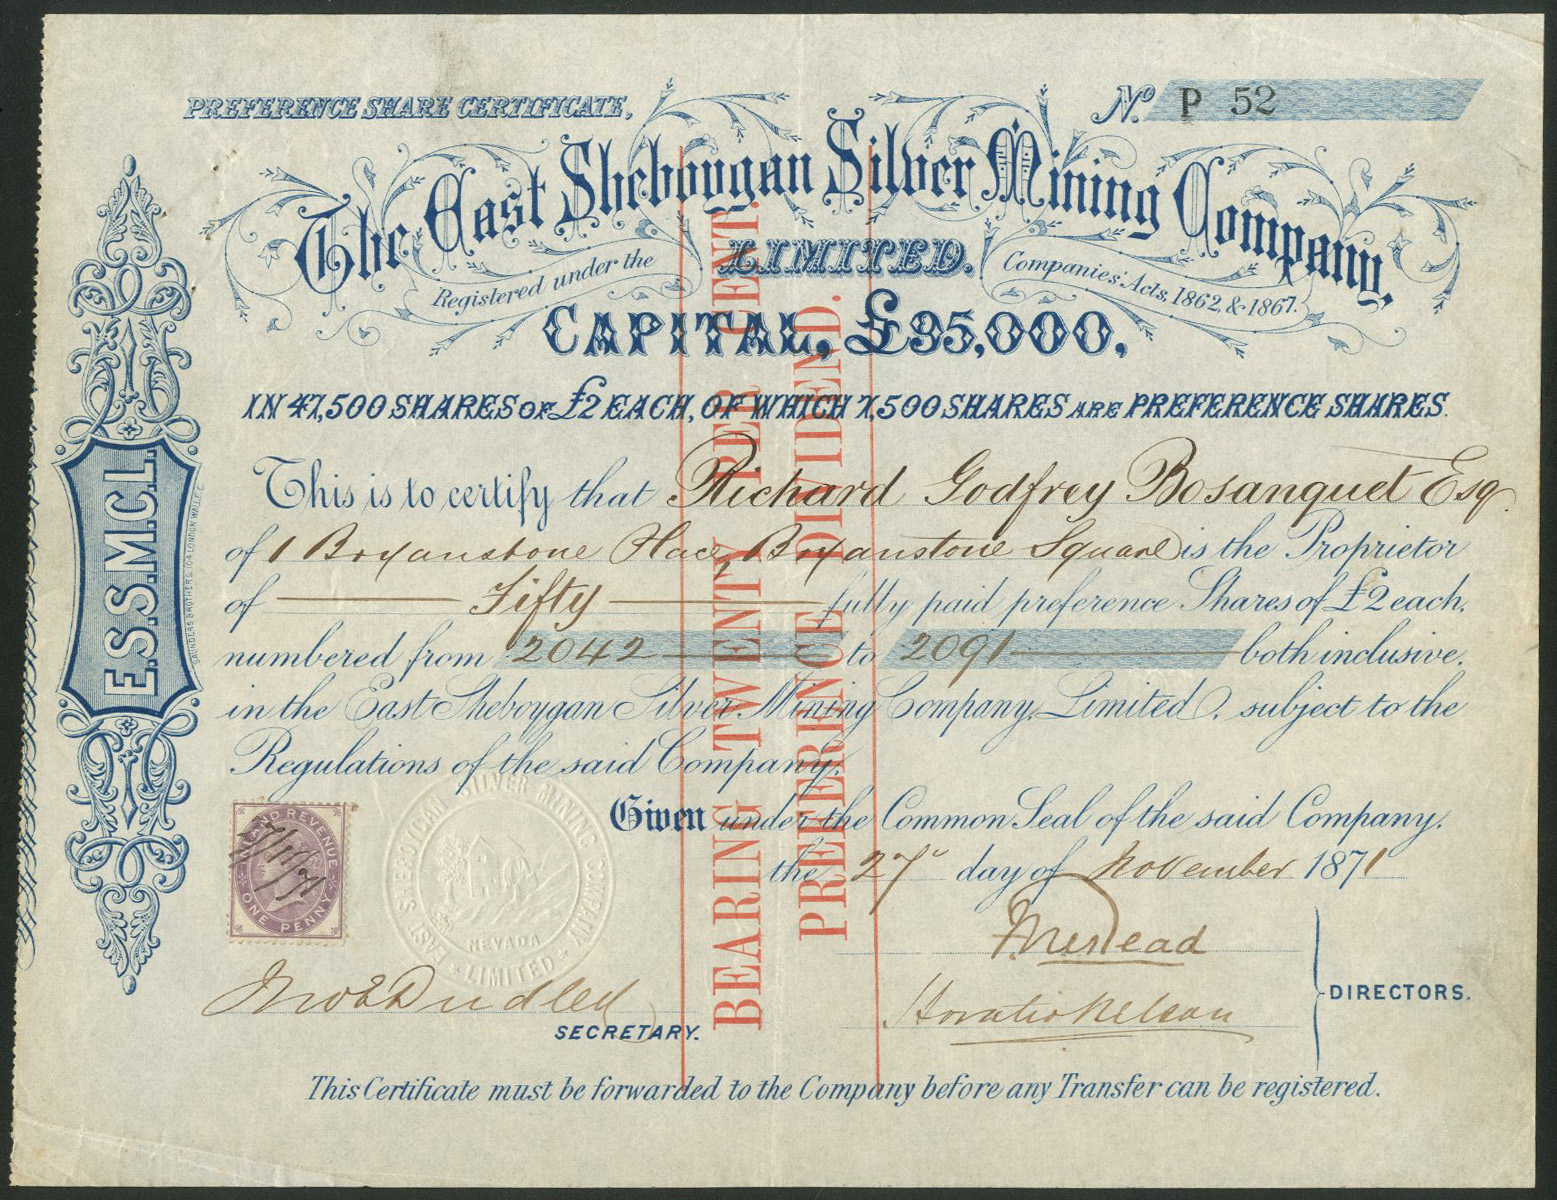 PREFERENCE SHARE CERTIFICATE.
No. P 52
The East Sheboygan Silver Mining Company,
Registered under the LIMITED. Companies' Acts, 1862, & 1867.
CAPITAL, £95,000,
IN 47,500 SHARES OF £2 EACH, OF WHICH 7,500 SHARES ARE PREFERENCE SHARES.
This is to certify that Richard Godfrey Bosanquet Esq
of 1 Bryanstone Place, Bryanstone Square is the Proprietor
of Fifty fully paid preference Shares of £2 each,
numbered from 2042 to 2091 both inclusive,
in the East Sheboygan Silver Mining Company, Limited, subject to the
Regulations of the said Company.
Given under the Common Seal of the said Company,
the 27 day of November 1871
Horatio Nelson
DIRECTORS.
SECRETARY.
This Certificate must be forwarded to the Company before any Transfer can be registered.
BEARING TWENTY PER CENT.
PREFERENCE DIVIDEND.
E.S.S.M.C.L.
SAUNDERS BROTHERS, 104, LONDON WALL, E.C.
INLAND REVENUE
ONE PENNY
EAST SHEBOYGAN SILVER MINING COMPANY
NEVADA
LIMITED